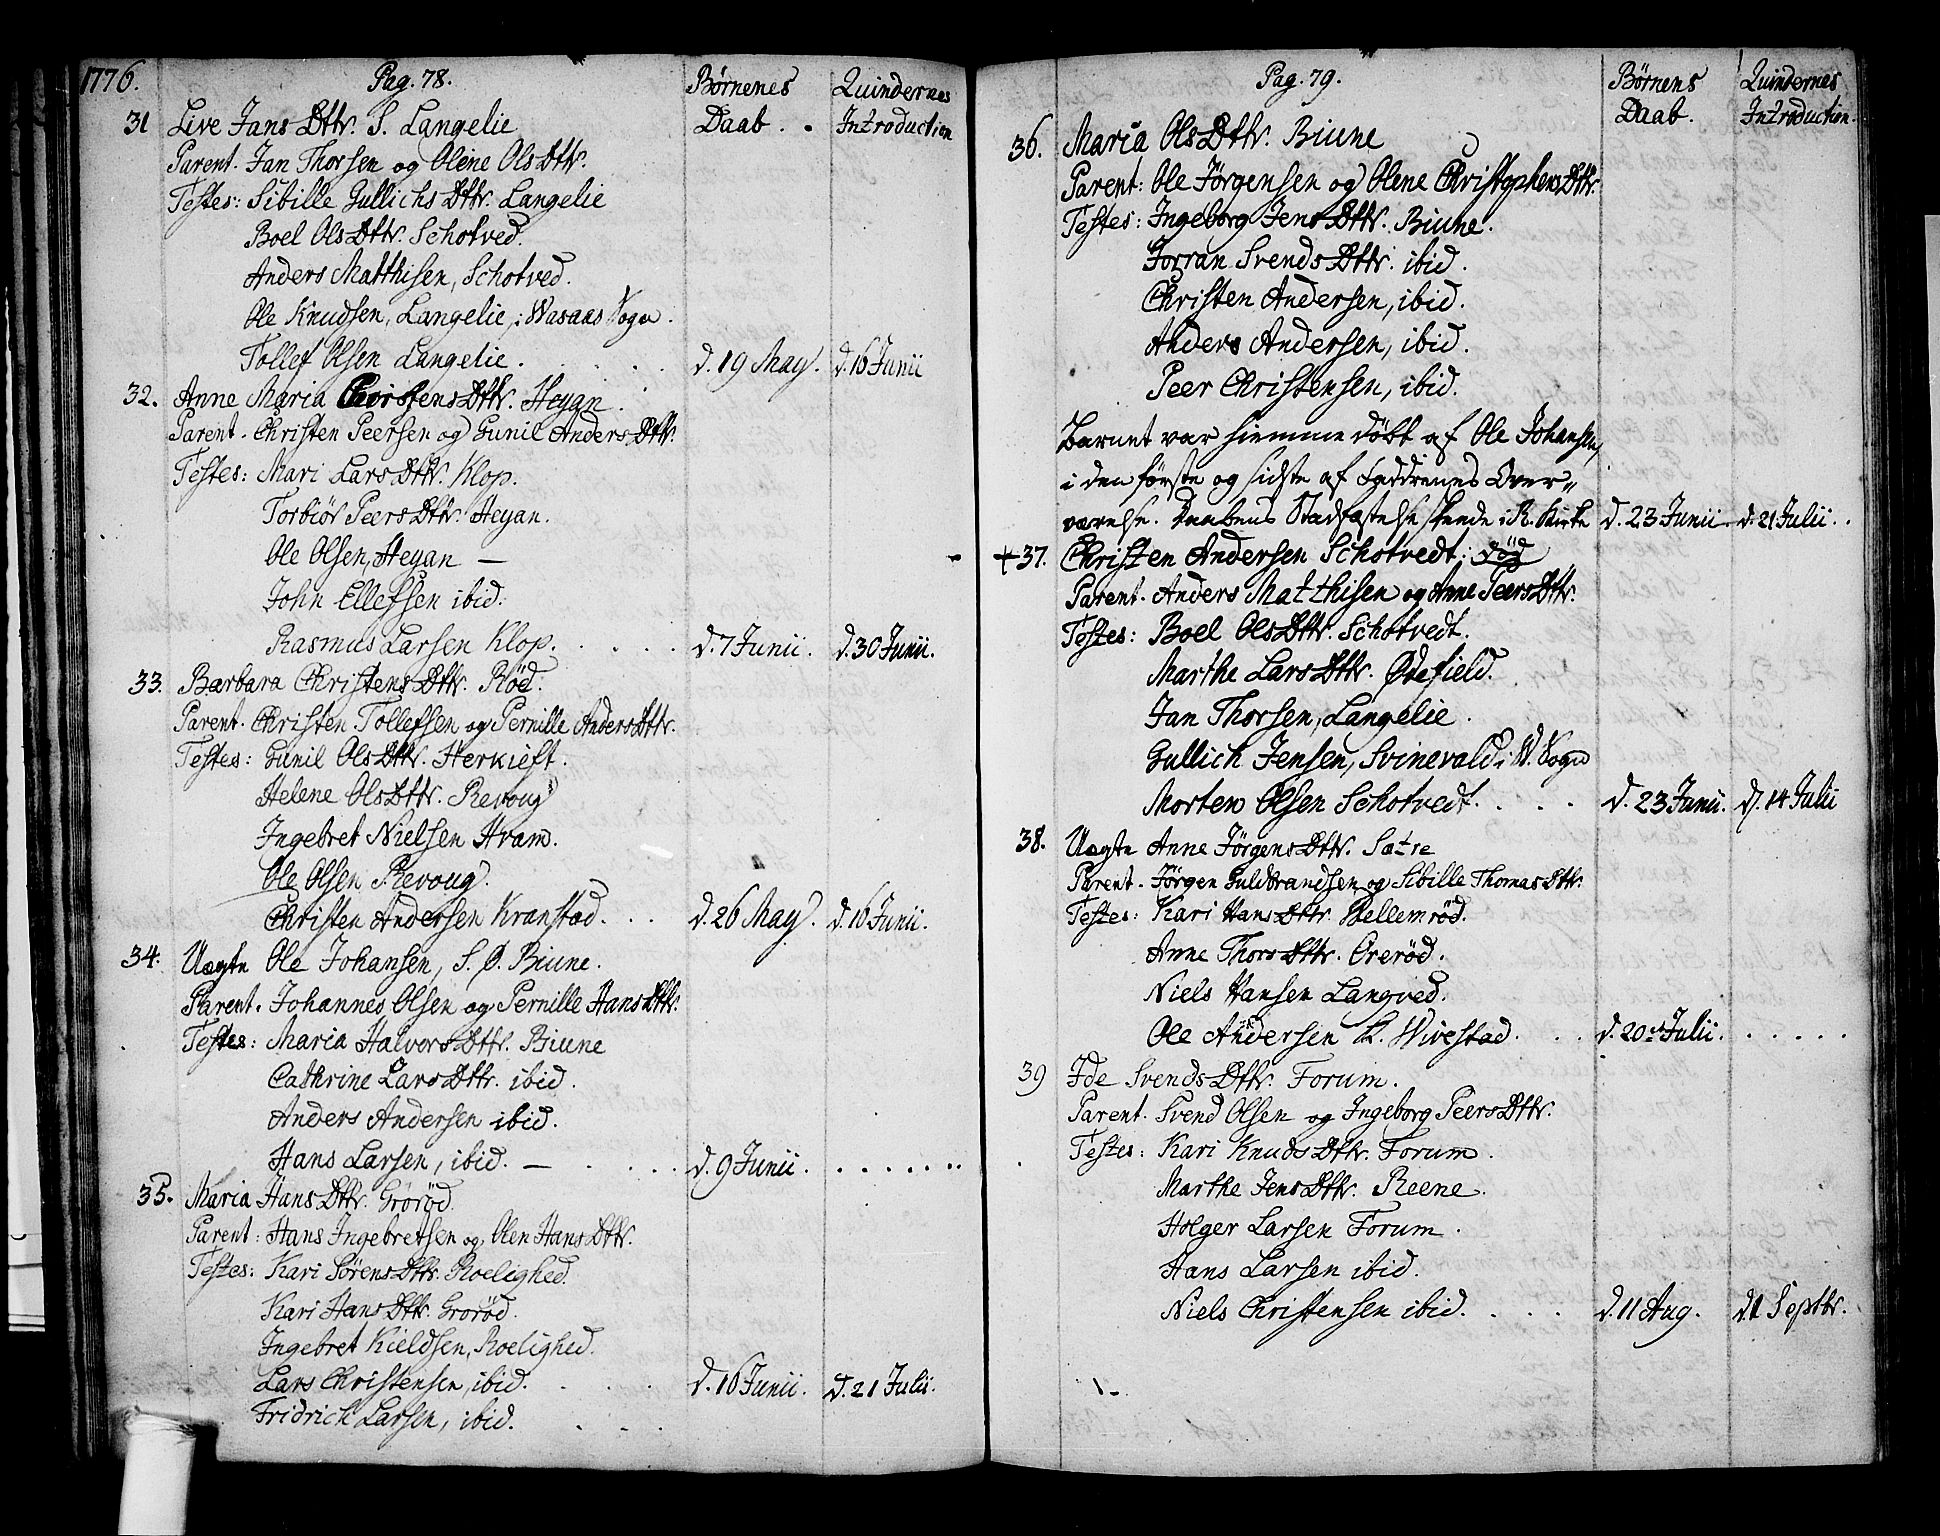 1776. Pag. 78. Børnenes Quindernes
Daab. Introduction
31 Live Jans Dttr. S. Langelie
Parent. Jan Thorsen og Olene Ols Dttr.
Testes: Sibille Gullichs Dttr. Langelie
Boel Ols Dttr. Schotved.
Anders Matthisen, Schotved.
Ole Knudsen, Langelie, i Wasaas Sogn.
Tollef Olsen Langelie. d. 19 May. d. 16 Junii
32. Anne Maria Christens Dttr. Heyan.
Parent. Christen Peersen og Gunil Anders Dttr.
Testes: Mari Lars Dttr. Klop.
Torbiør Peers Dttr. Heyan.
Ole Olsen, Heyan —
John Ellefsen ibid:
Rasmus Larsen Klop. d. 7 Junii. d. 30 Junii.
33. Barbara Christens Dttr. Röd.
Parent. Christen Tollefsen og Pernille Anders Dttr.
Testes: Gunil Ols Dttr. Herkieft.
Helene Ols Dttr. Revoug
Ingebret Nielsen Hvam.
Ole Olsen Revoug.
Christen Andersen Kranstad. d. 26 May. d. 16 Junii.
34. Uægte Ole Johansen, S. Ø. Biune.
Parent. Johannes Olsen og Pernille Hans Dttr.
Testes: Maria Halvors Dttr. Biune
Cathrine Lars Dttr. ibid.
Anders Andersen ibid.
Hans Larsen, ibid. — d. 9 Junii. . . . . . .
35. Maria Hans Dttr. Grorød.
Parent: Hans Ingebretsen og Olen Hans Dttr.
Testes: Kari Sörens Dttr. Roelighed.
Kari Hans Dttr. Grorød.
Ingebret Kieldsen, Roelighed.
Lars Christensen, ibid. d. 16 Junii. d. 21 Julii.
Fridrich Larsen, ibid.
Pag. 79. Børnens Quindernes
Daab. Introduction.
36. Maria Ols Dttr. Biune
Parent: Ole Jørgensen og Olene Christophers Dttr.
Testes: Ingeborg Jens Dttr. Biune.
Jorran Svends Dttr. ibid.
Christen Andersen, ibid.
Anders Andersen, ibid.
Peer Christensen, ibid.
Barnet var hiemme døbt af Ole Johansen,
i den første og sidste af Faddrenes Over„
værelse. Daabens Stadfæstelse skeede i R. Kirke d. 23 Junii d. 21 Julii.
+37. Christen Andersen Schotvedt. död
Parent. Anders Matthisen og Anne Peers Dttr.
Testes: Boel Ols Dttr. Schotvedt.
Marthe Lars Dttr. Ødefield.
Jan Thorsen, Langelie.
Gullich Jensen, Svinevald i W. Sogn
Morten Olsen Schotvedt. d. 23 Junii. d. 14 Julii
38. Uægte Anne Jörgens Dttr. Sætre
Parent. Jörgen Guldbrandsen og Sibille Thomas Dttr.
Testes: Kari Hans Dttr. Pellemröd.
Anne Thors Dttr. Orerød.
Niels Hansen Langved.
Ole Andersen K. Wivestad. d. 20de Julii. . . . . .
39 Ide Svends Dttr. Forum.
Parent. Svend Olsen og Ingeborg Peers Dttr.
Testes: Kari Knuds Dttr. Forum.
Marthe Jens Dttr. Reene.
Holger Larsen Forum.
Hans Larsen ibid.
Niels Christensen ibid. d. 11 Aug. d. 1 Septbr.